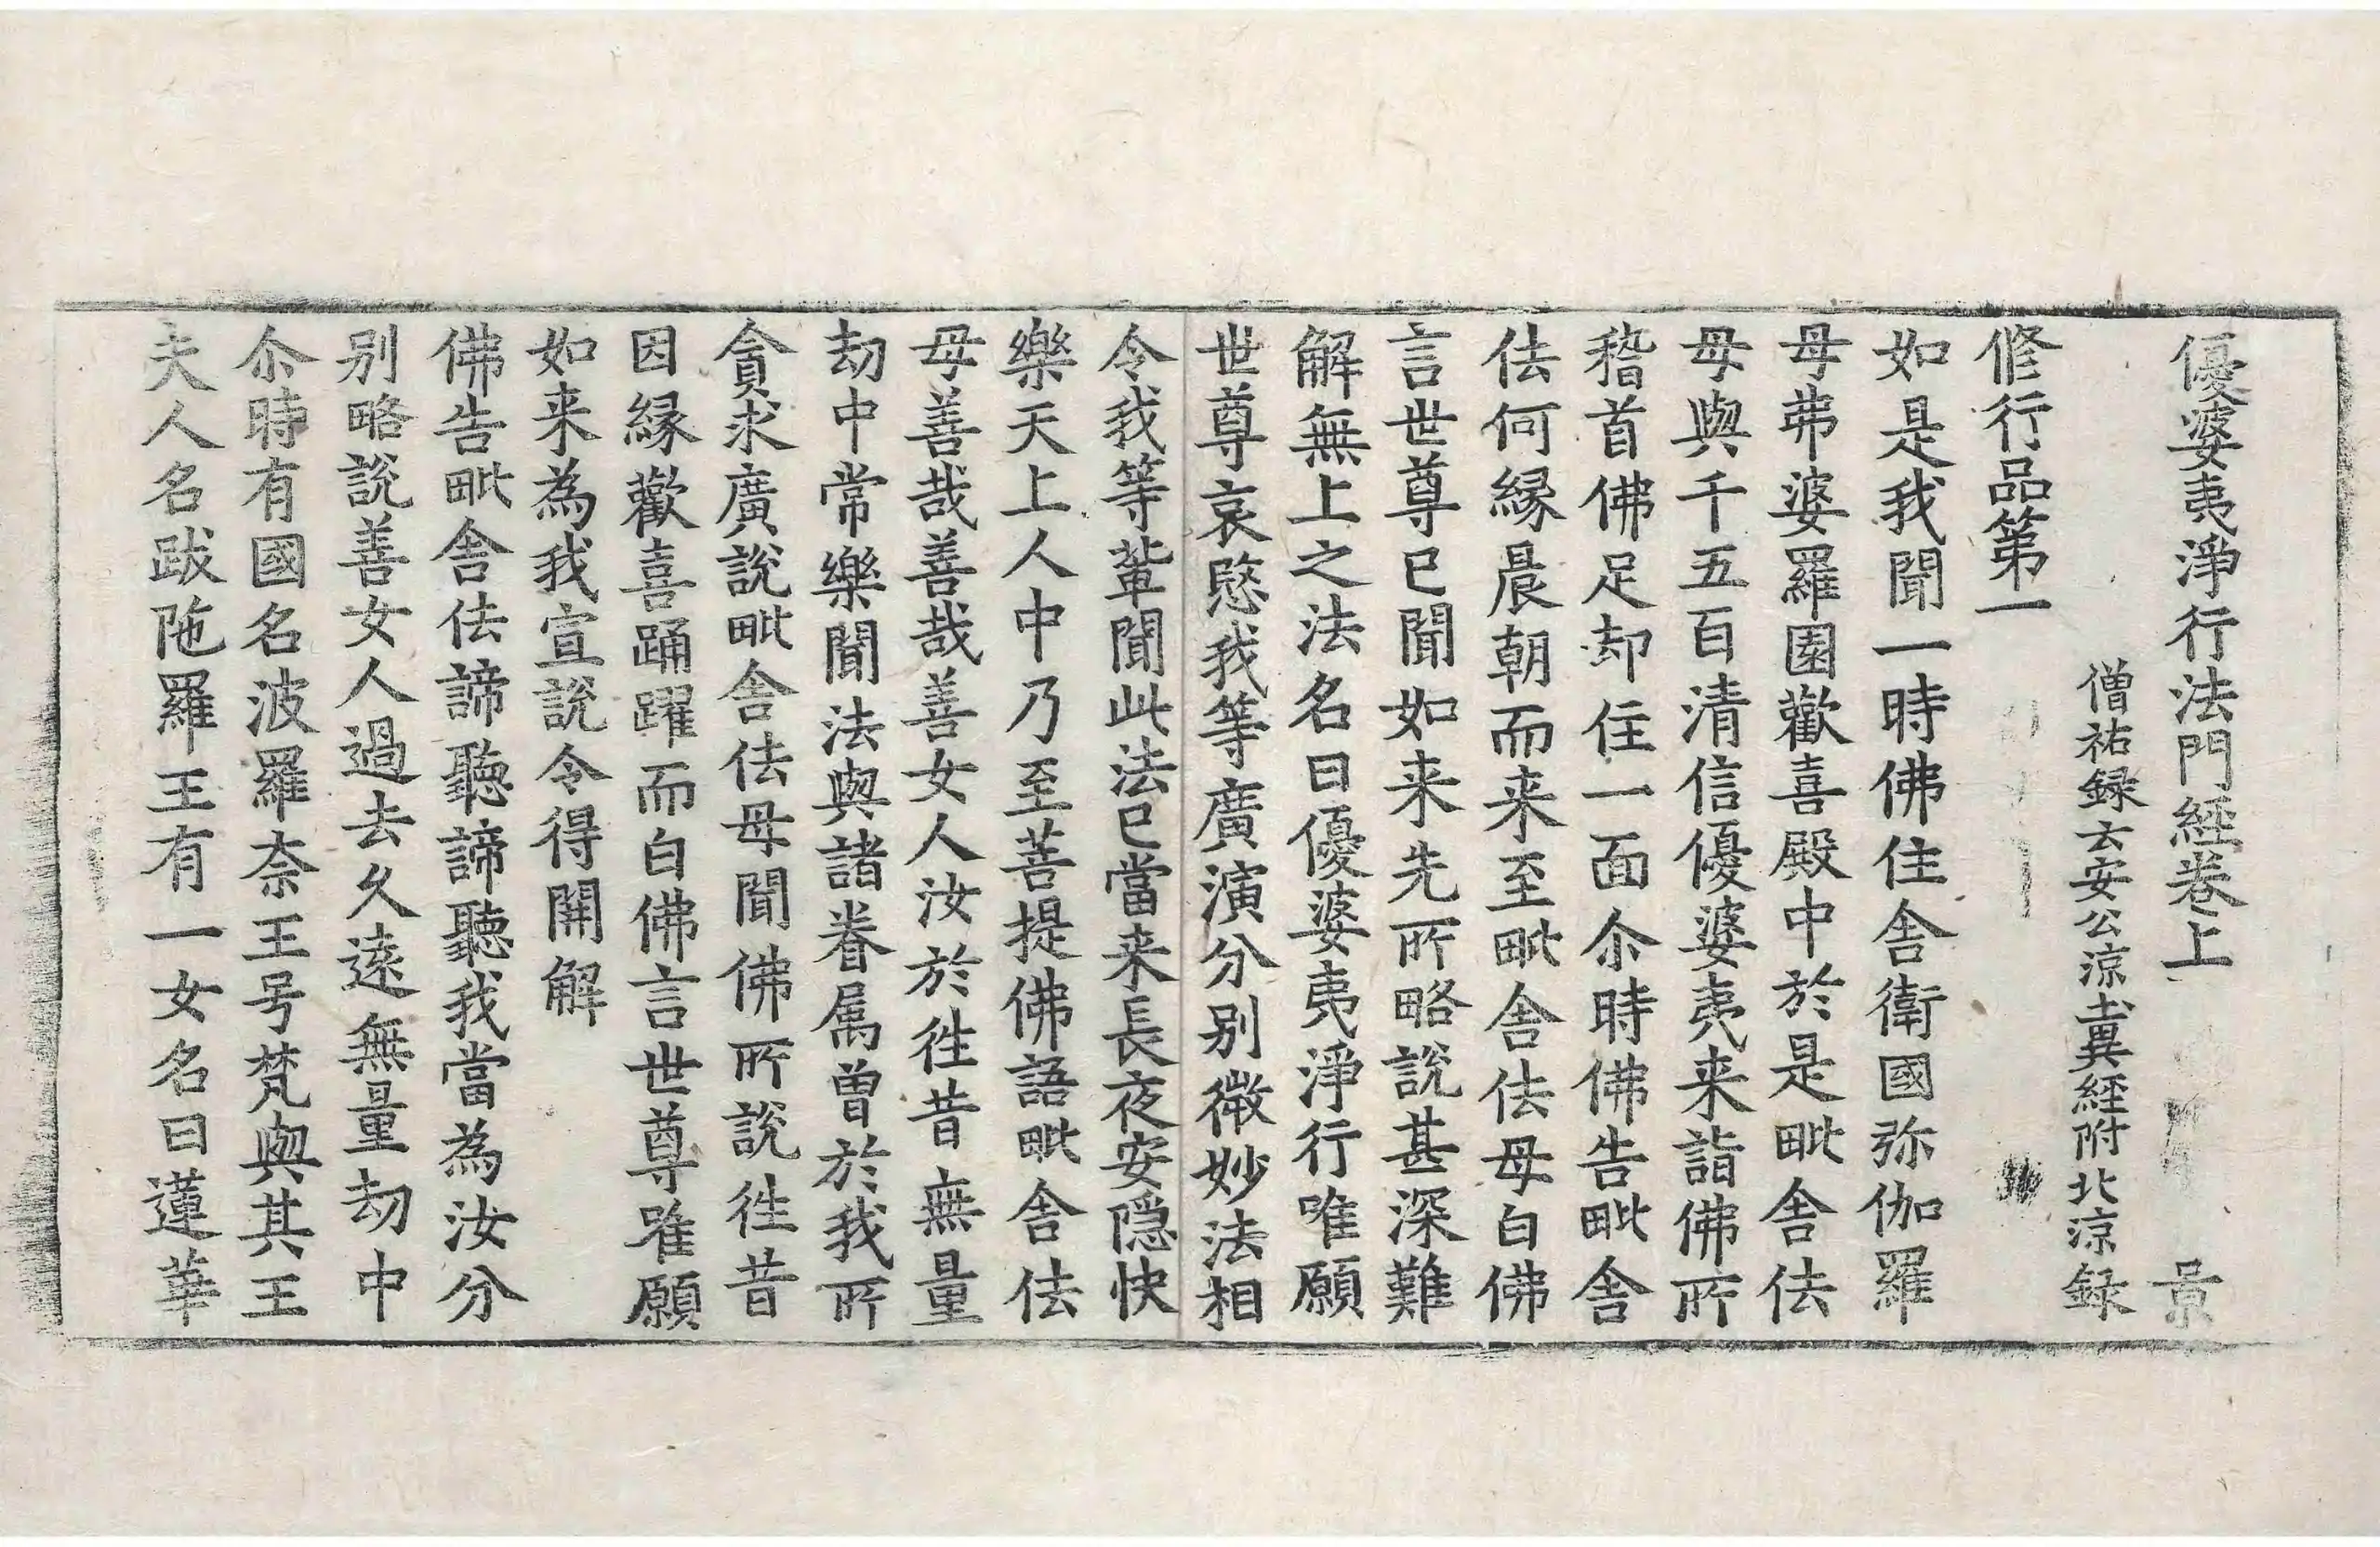 優婆夷淨行法門經卷上 景
僧祐録云安公涼土異経附北涼録
修行品第一
如是我聞一時佛住舎衛國弥伽羅
母弗婆羅園歡喜殿中於是毗舎佉
母與千五百清信優婆夷来詣佛所
稽首佛足却住一面尒時佛告毗舎
佉何縁晨朝而来至毗舎佉母白佛
言世尊已聞如来先所略說甚深難
解無上之法名曰優婆夷淨行唯願
世尊哀愍我等廣演分別微妙法相
令我等軰聞此法已當来長夜安隠快
樂天上人中乃至菩提佛語毗舎佉
母善哉善哉善女人汝於徃昔無量
劫中常樂聞法與諸眷属曽於我所
貪求廣說毗舎佉母聞佛所說徃昔
因縁歡喜踊躍而白佛言世尊唯願
如来為我宣說令得開解
佛告毗舎佉諦聽諦聽我當為汝分
別略說善女人過去久遠無量劫中
尒時有國名波羅奈王号梵與其王
夫人名跋陁羅王有一女名曰蓮華